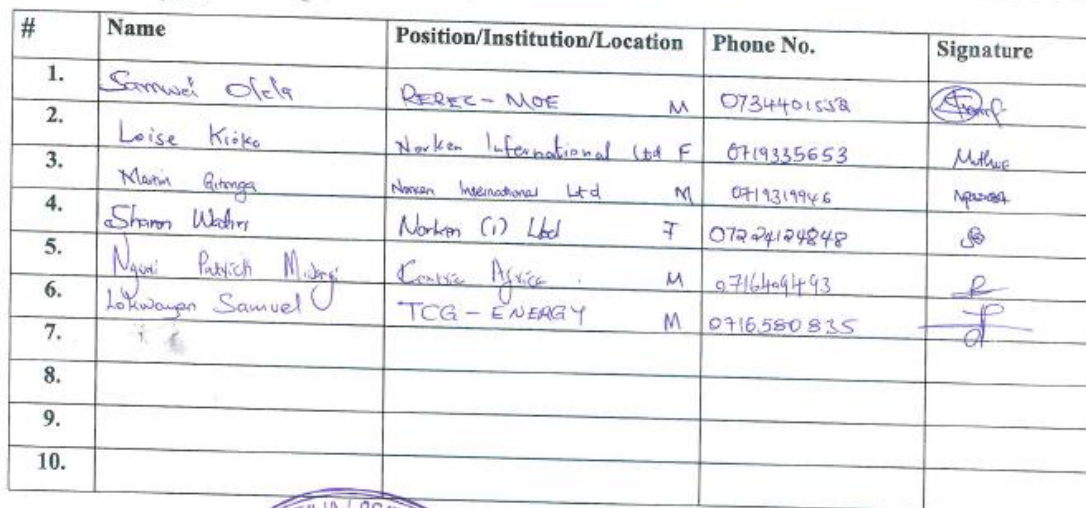 # Name Position/Institution/Location Phone No. Signature
1. Samwel Olela REREC - MOE M 0734401552
2. Loise Kioko Norken International Ltd F 0719335653
3. Martin Gitonga Norken International Ltd M 0719319946
4. Sharon Norken (i) Ltd F 07224124848
5. Patrich Africa M
6. Lokwangen Samuel TCG - ENERGY M 0716580835
7.
8.
9.
10.